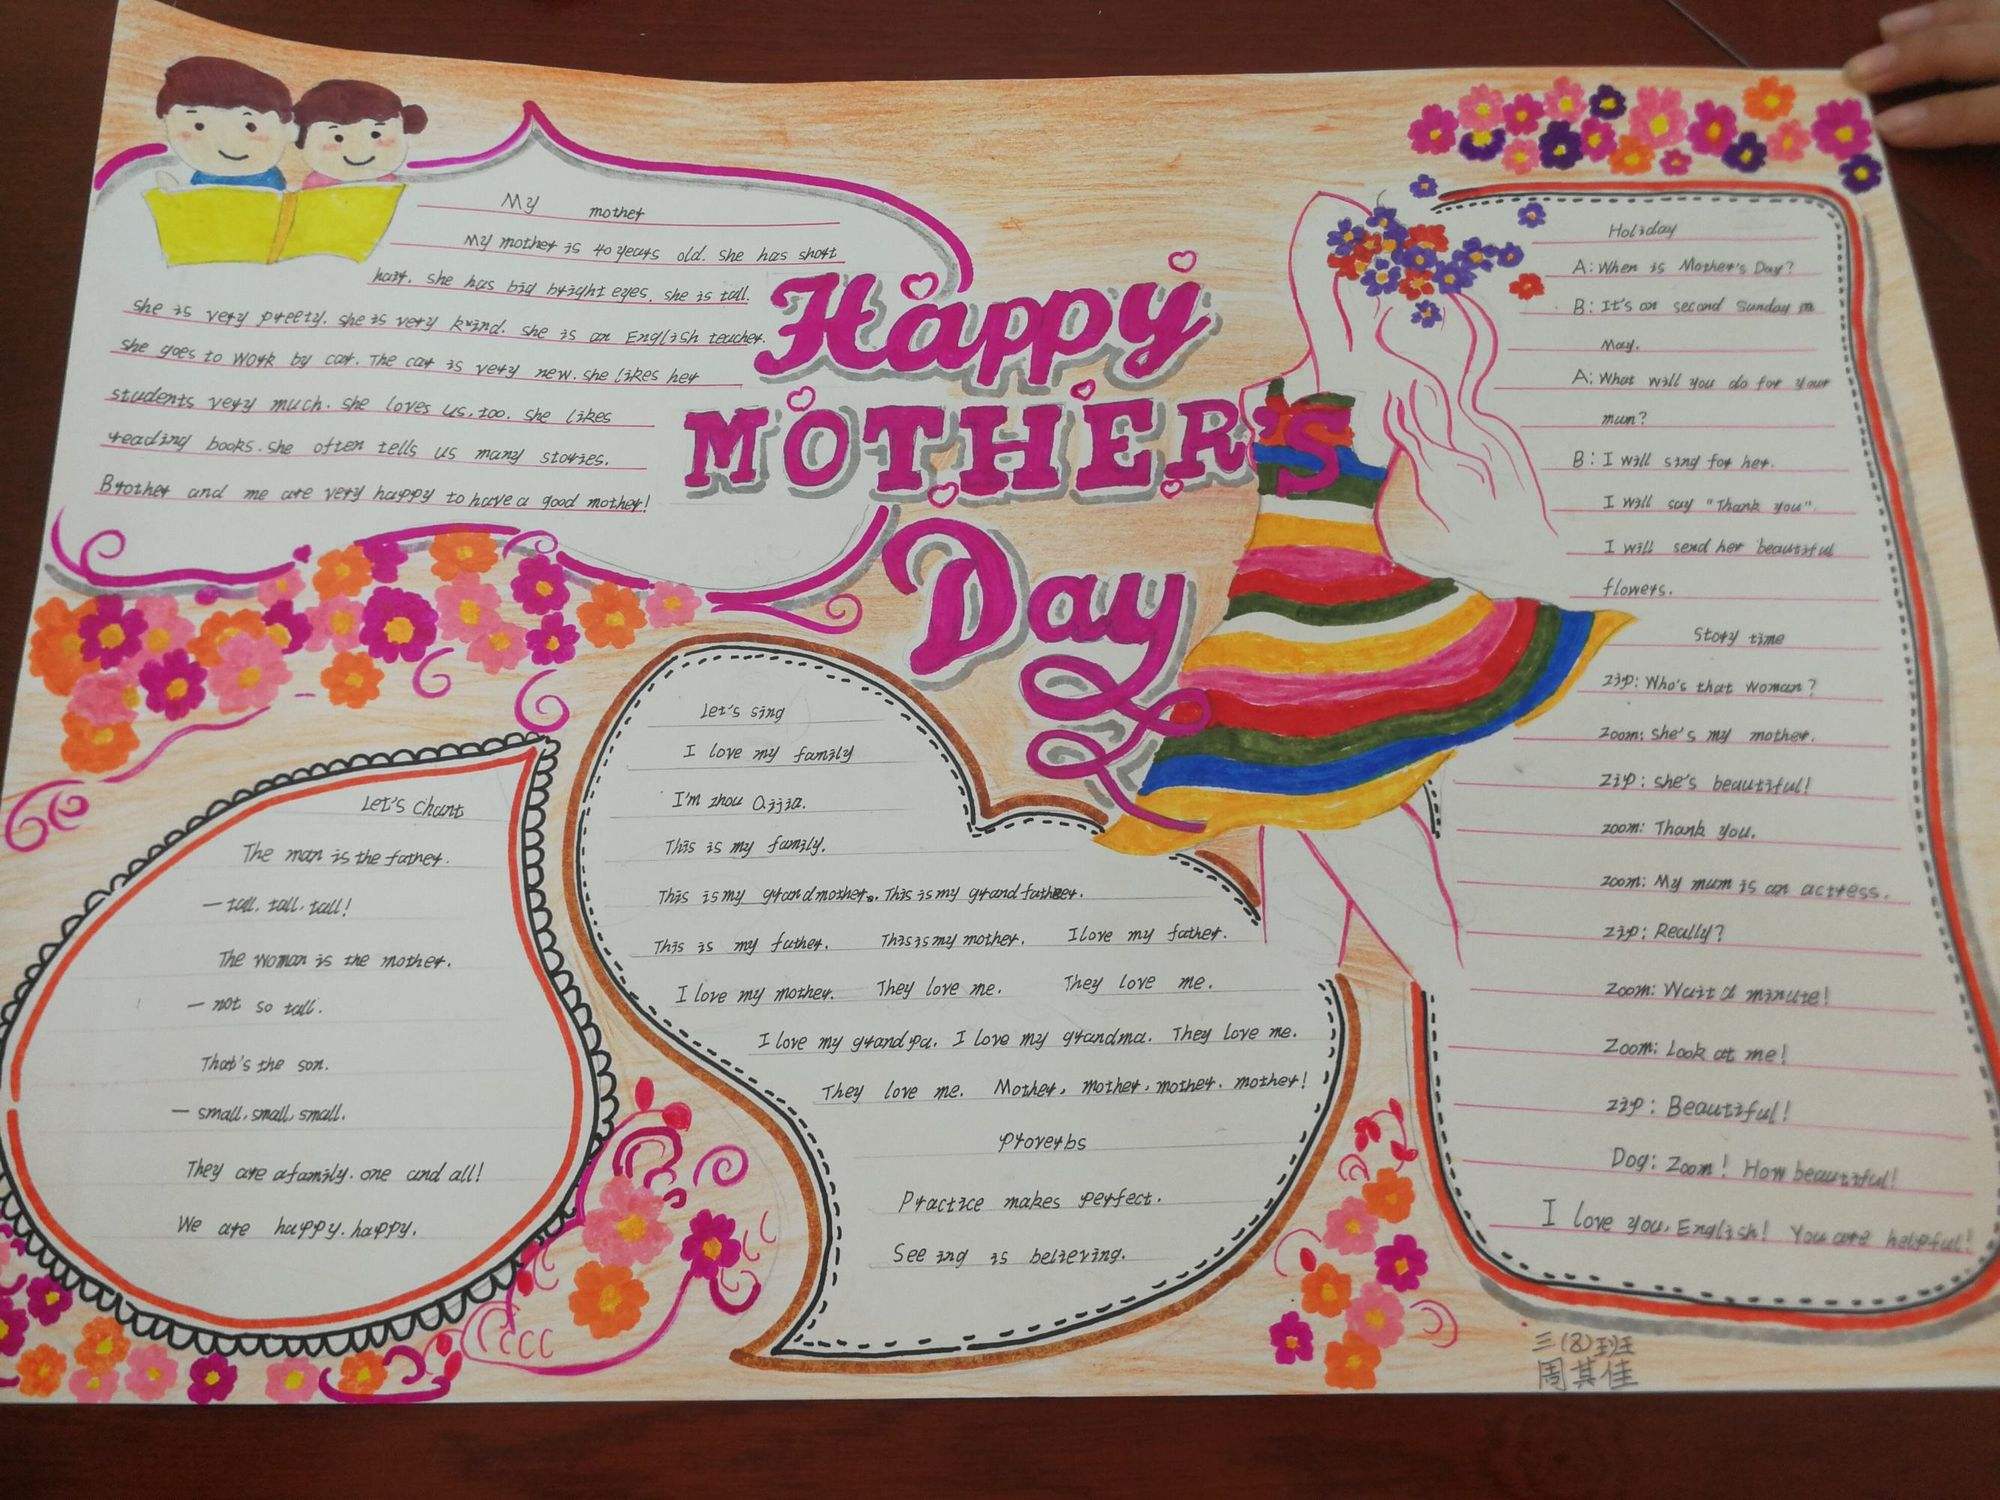 My mother
My mother is 40 years old. she has short
hair. she has big bright eyes. she is tall.
she is very preety. she is very kind. she is an English teacher.
she goes to work by car. The car is very new. she likes her
students very much. she loves us, too. she likes
reading books. she often tells us many stories.
Brother and me are very happy to have a good mother!
Happy
MOTHER'S
Day
Let's Chant
The man is the father.
— tall, tall, tall!
The woman is the mother.
— not so tall.
That's the son.
— small, small, small.
They are a family. one and all!
We are happy. happy.
Let's sing
I love my family
I'm zhou Qijia.
This is my family.
This is my grandmother. This is my grandfather.
This is my father. This is my mother. I love my father.
I love my mother. They love me. They love me.
I love my grandpa. I love my grandma. They love me.
They love me. Mother, mother, mother. mother!
Proverbs
Practice makes perfect.
Seeing is believing.
Holiday
A: When is Mother's Day?
B: It's on second Sunday in
May.
A: What will you do for your
mum?
B: I will sing for her.
I will say "Thank you".
I will send her beautiful
flowers.
Story time
zip: Who's that woman?
zoom: she's my mother.
zip: she's beautiful!
zoom: Thank you.
zoom: My mum is an actress.
zip: Really?
zoom: Wait a minute!
Zoom: Look at me!
zip: Beautiful!
Dog: Zoom! How beautiful!
I love you, English! You are helpful!
三(8)班
周其佳